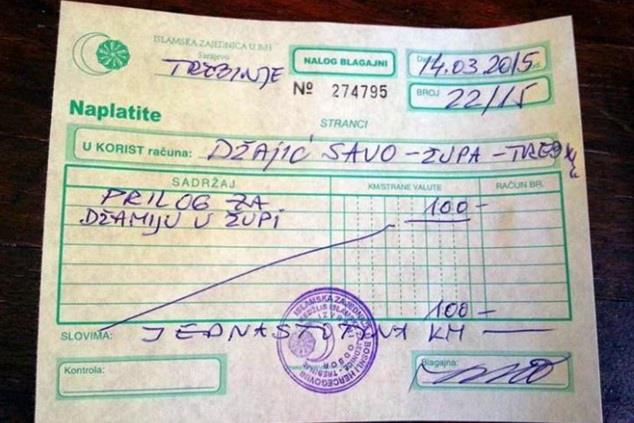 ISLAMSKA ZAJEDNICA U BIH
Sarajevo
TREBINJE
NALOG BLAGAJNI
14.03.2015
№ 274795
BROJ 22/15
Naplatite
STRANCI
U KORIST računa: DŽAJIĆ SAVO - ŽUPA - TREB
SADRŽAJ KM/STRANE VALUTE RAČUN BR.
PRILOG ZA 100 -
DŽAMIJU U ŽUPI
100 -
SLOVIMA: JEDNASTOTINA KM
ISLAMSKA ZAJEDNICA U BOSNI I HERCEGOVINI
IZVRŠNI ODBOR
TREBINJE
Kontrola: Blagajna: